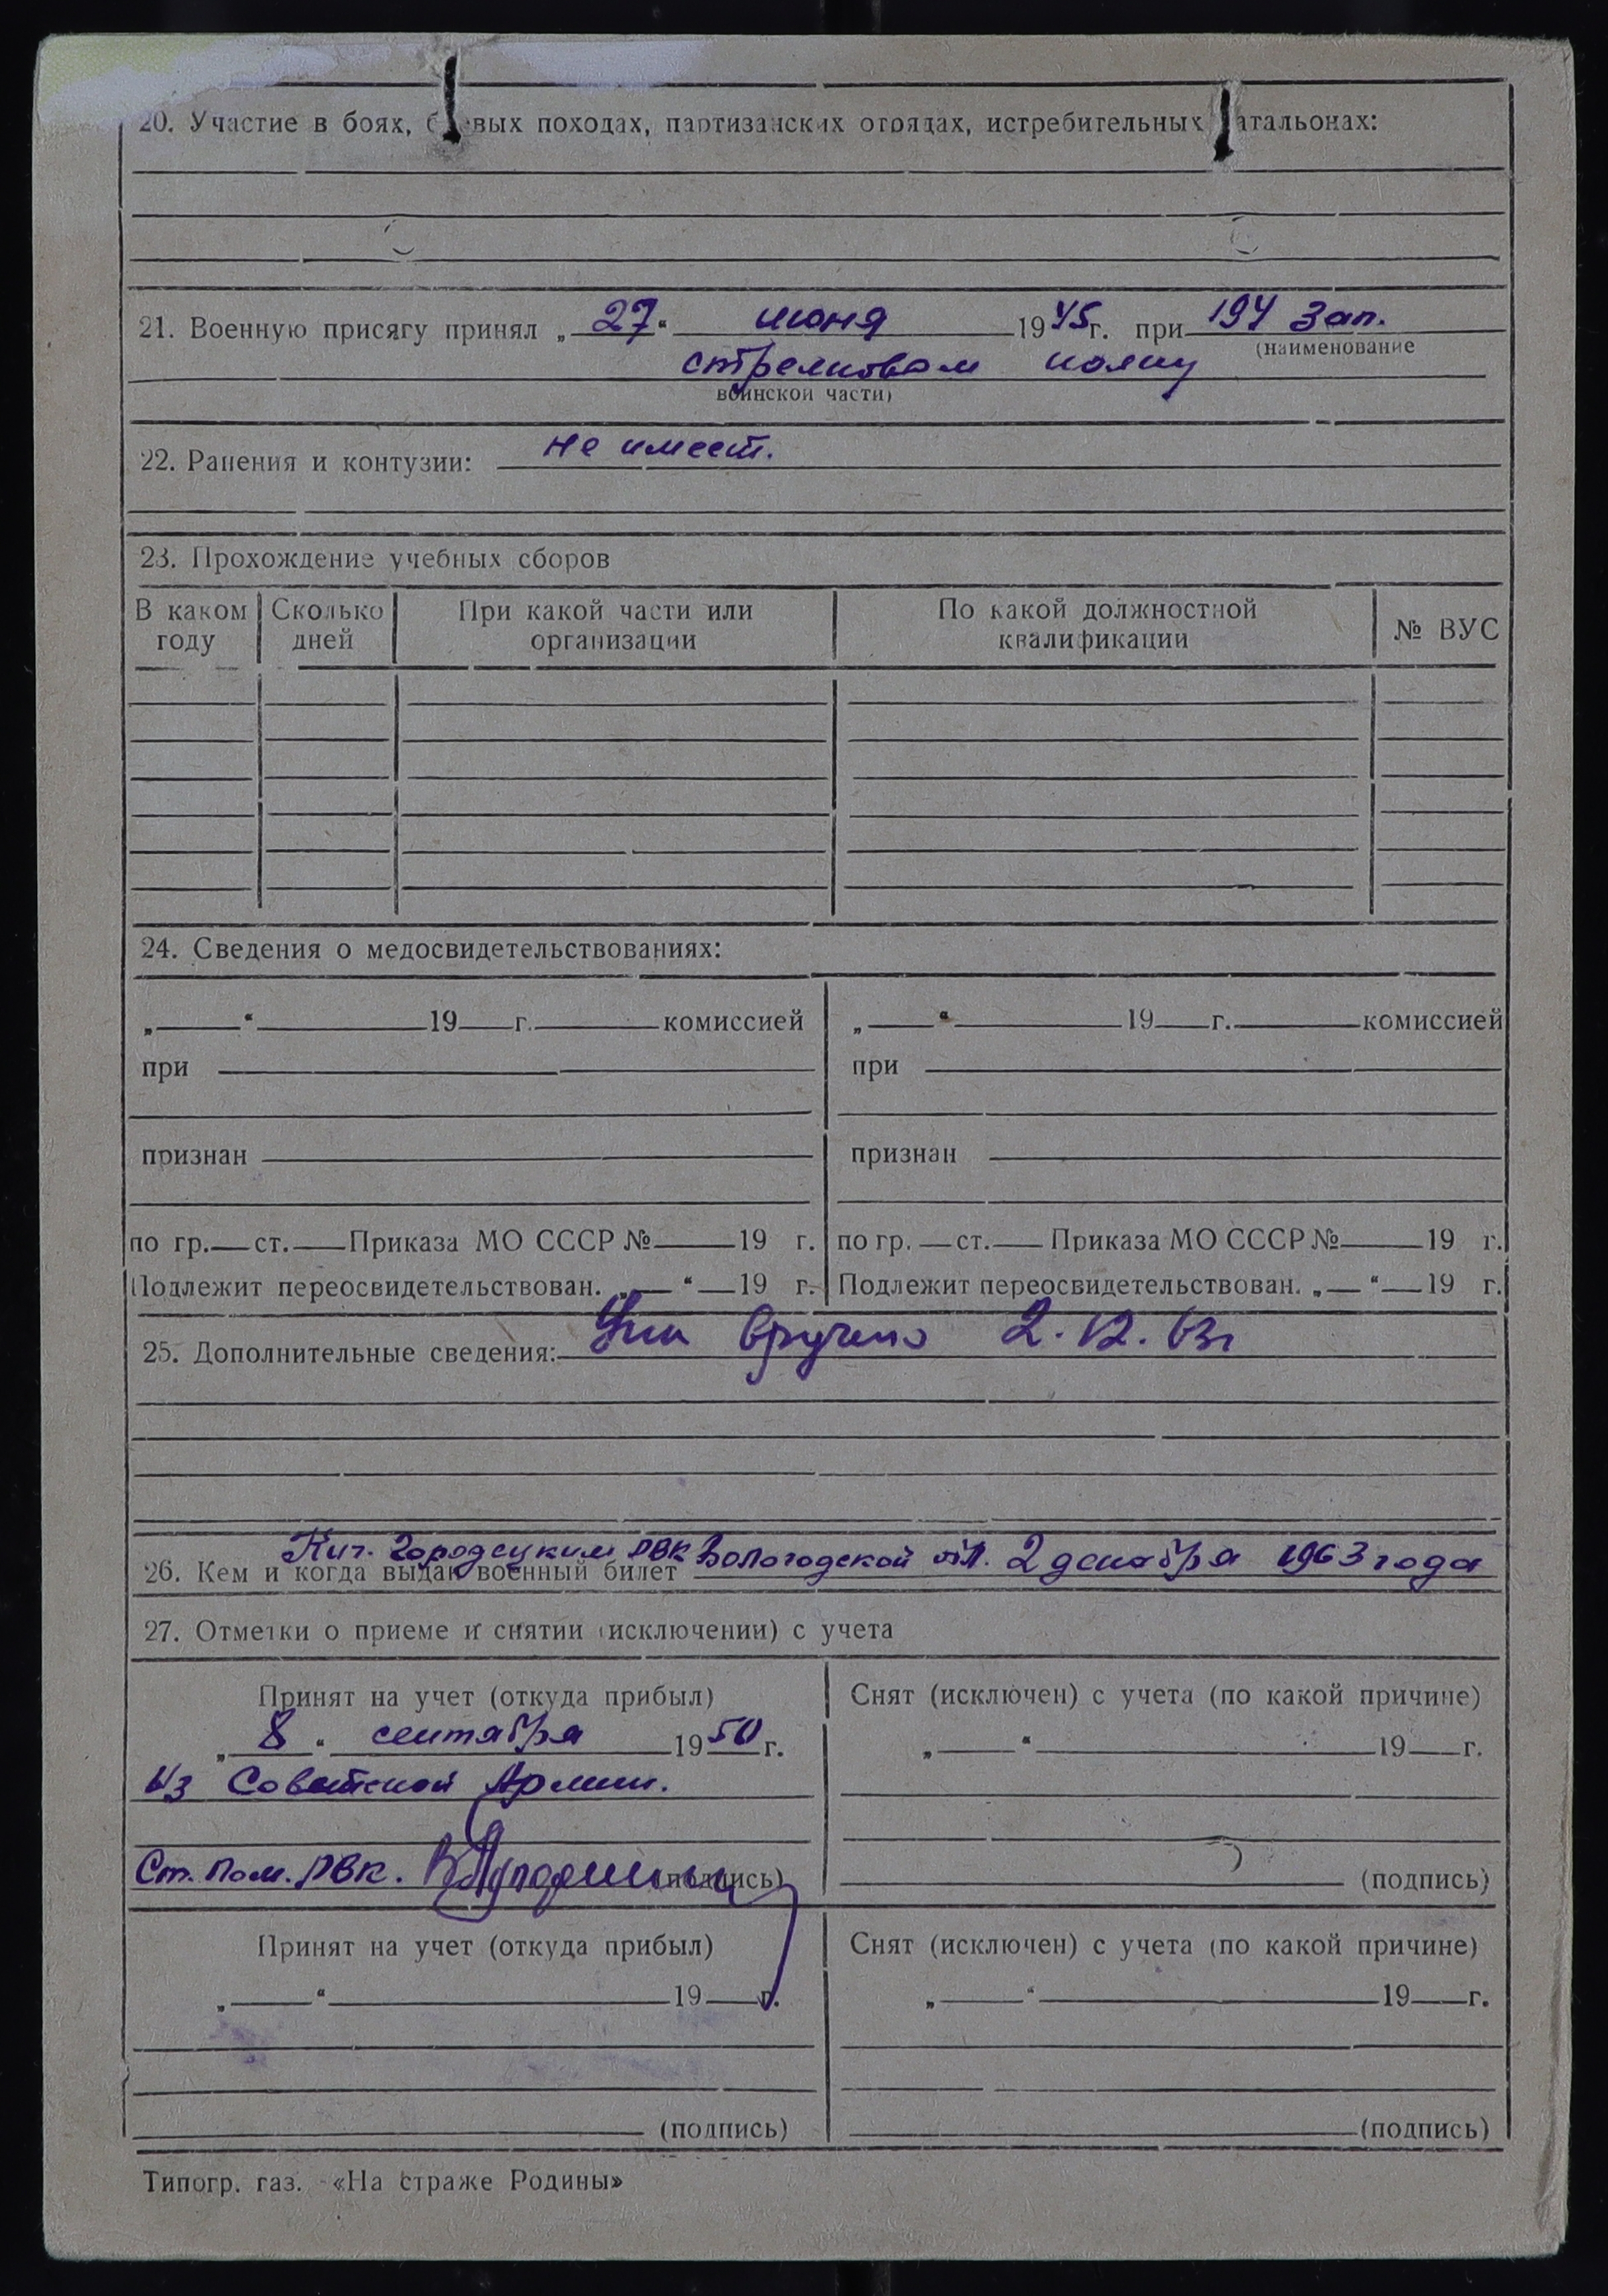 20. Участие в боях, боевых походах, партизанских отрядах, истребительных батальонах:
21. Военную присягу принял „27“ июня 1945г. при 194 Зап.
(наименование
стрелковом полку
воинской части)
22. Ранения и контузии: не имеет.
23. Прохождение учебных сборов
В каком году | Сколько дней | При какой части или организации | По какой должностной квалификации | № ВУС
24. Сведения о медосвидетельствованиях:
„ “ 19 г. комиссией | „ “ 19 г. комиссией
при | при
признан | признан
по гр. ст. Приказа МО СССР № 19 г. | по гр. ст. Приказа МО СССР № 19 г.
Подлежит переосвидетельствован. „ “ 19 г. | Подлежит переосвидетельствован. „ “ 19 г.
25. Дополнительные сведения: вручено 2.12.63г
26. Кем и когда выдан военный билет Кич. Городецким РВК Вологодской обл. 2 декабря 1963 года
27. Отметки о приеме и снятии (исключении) с учета
Принят на учет (откуда прибыл) | Снят (исключен) с учета (по какой причине)
„8“ сентября 1950г. | „ “ 19 г.
Из Советской Армии.
Ст. Пом. РВК. (подпись) | (подпись)
Принят на учет (откуда прибыл) | Снят (исключен) с учета (по какой причине)
„ “ 19 г. | „ “ 19 г.
(подпись) | (подпись)
Типогр. газ. «На страже Родины»